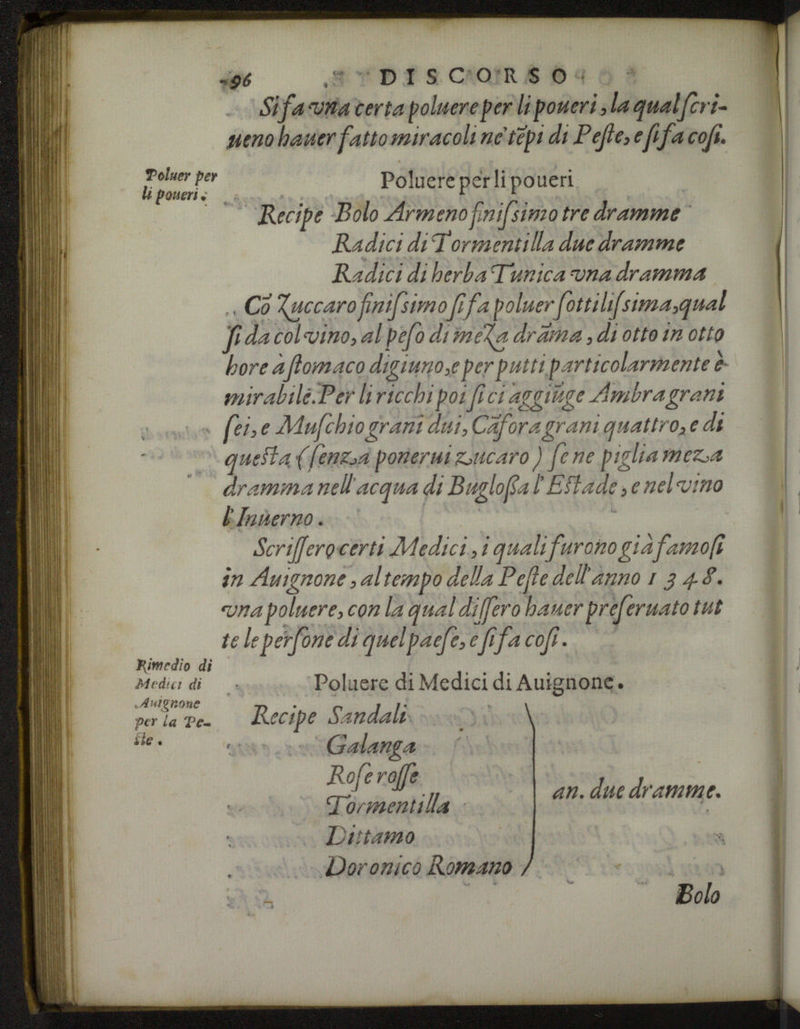 96 DISCORSO
Si fa vna certa poluere per li poueri, la qual scri-
ueno hauer fatto miracoli ne' tẽpi di Peste, e si fa cosi.
Poluer per
li poueri.
Poluere per li poueri
Recipe Bolo Armeno finissimo tre dramme
Radici di Tormentilla due dramme
Radici di herba Tunica vna dramma
Cõ Zuccaro finissimo si fa poluer sottilissima, qual
si da col vino, al peso di meza drãma, di otto in otto
hore à stomaco digiuno, e per putti particolarmente è
mirabile. Per li ricchi poi si ci aggiũge Ambra grani
sei, e Muschio grani dui, Cãfora grani quattro, e di
questa (senza ponerui zucaro) se ne piglia meza
dramma nell'acqua di Buglossa l'Estade, e nel vino
l'Inuerno.
Scrissero certi Medici, i quali furono già famosi
in Auignone, al tempo della Peste dell'anno 1348.
vna poluere, con la qual dissero hauer preseruato tut
te le persone di quel paese, e si fa cosi.
Rimedio di
Medici di
Auignone
per la Pe-
ste.
Poluere di Medici di Auignone.
Recipe Sandali
Galanga
Rose rosse
Tormentilla
an. due dramme.
Dittamo
Doronico Romano
Bolo